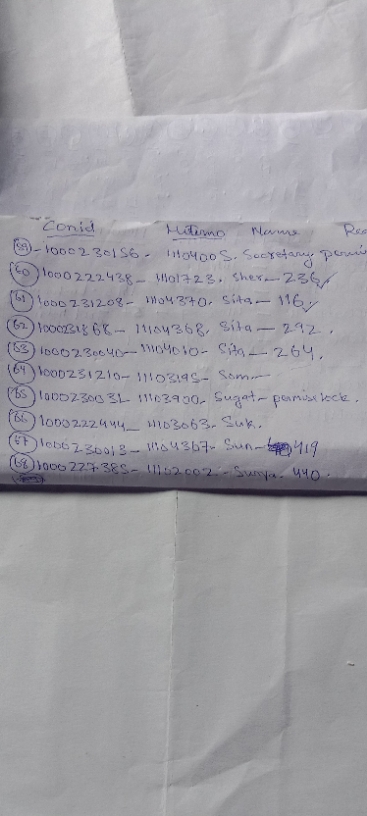 Conid Meterno Name Rea
59 - 1000230156 - 11104005. Secretary
60 1000222438 - 11101723. Sher - 236
61 1000231208 - 11104370. Sita - 116
62 - 11104368. Sita - 292.
63 1000230040 - 11104010 - Sita - 264.
64 1000231210 - 11103195 - Som -
65 1000230031 - 11103900 - Sugat -
66 1000222444 - 11103063 - Suk.
67 1000230013 - 11104367 - Sun - 419
68 1000227385 - 11102002 - Surya - 440.